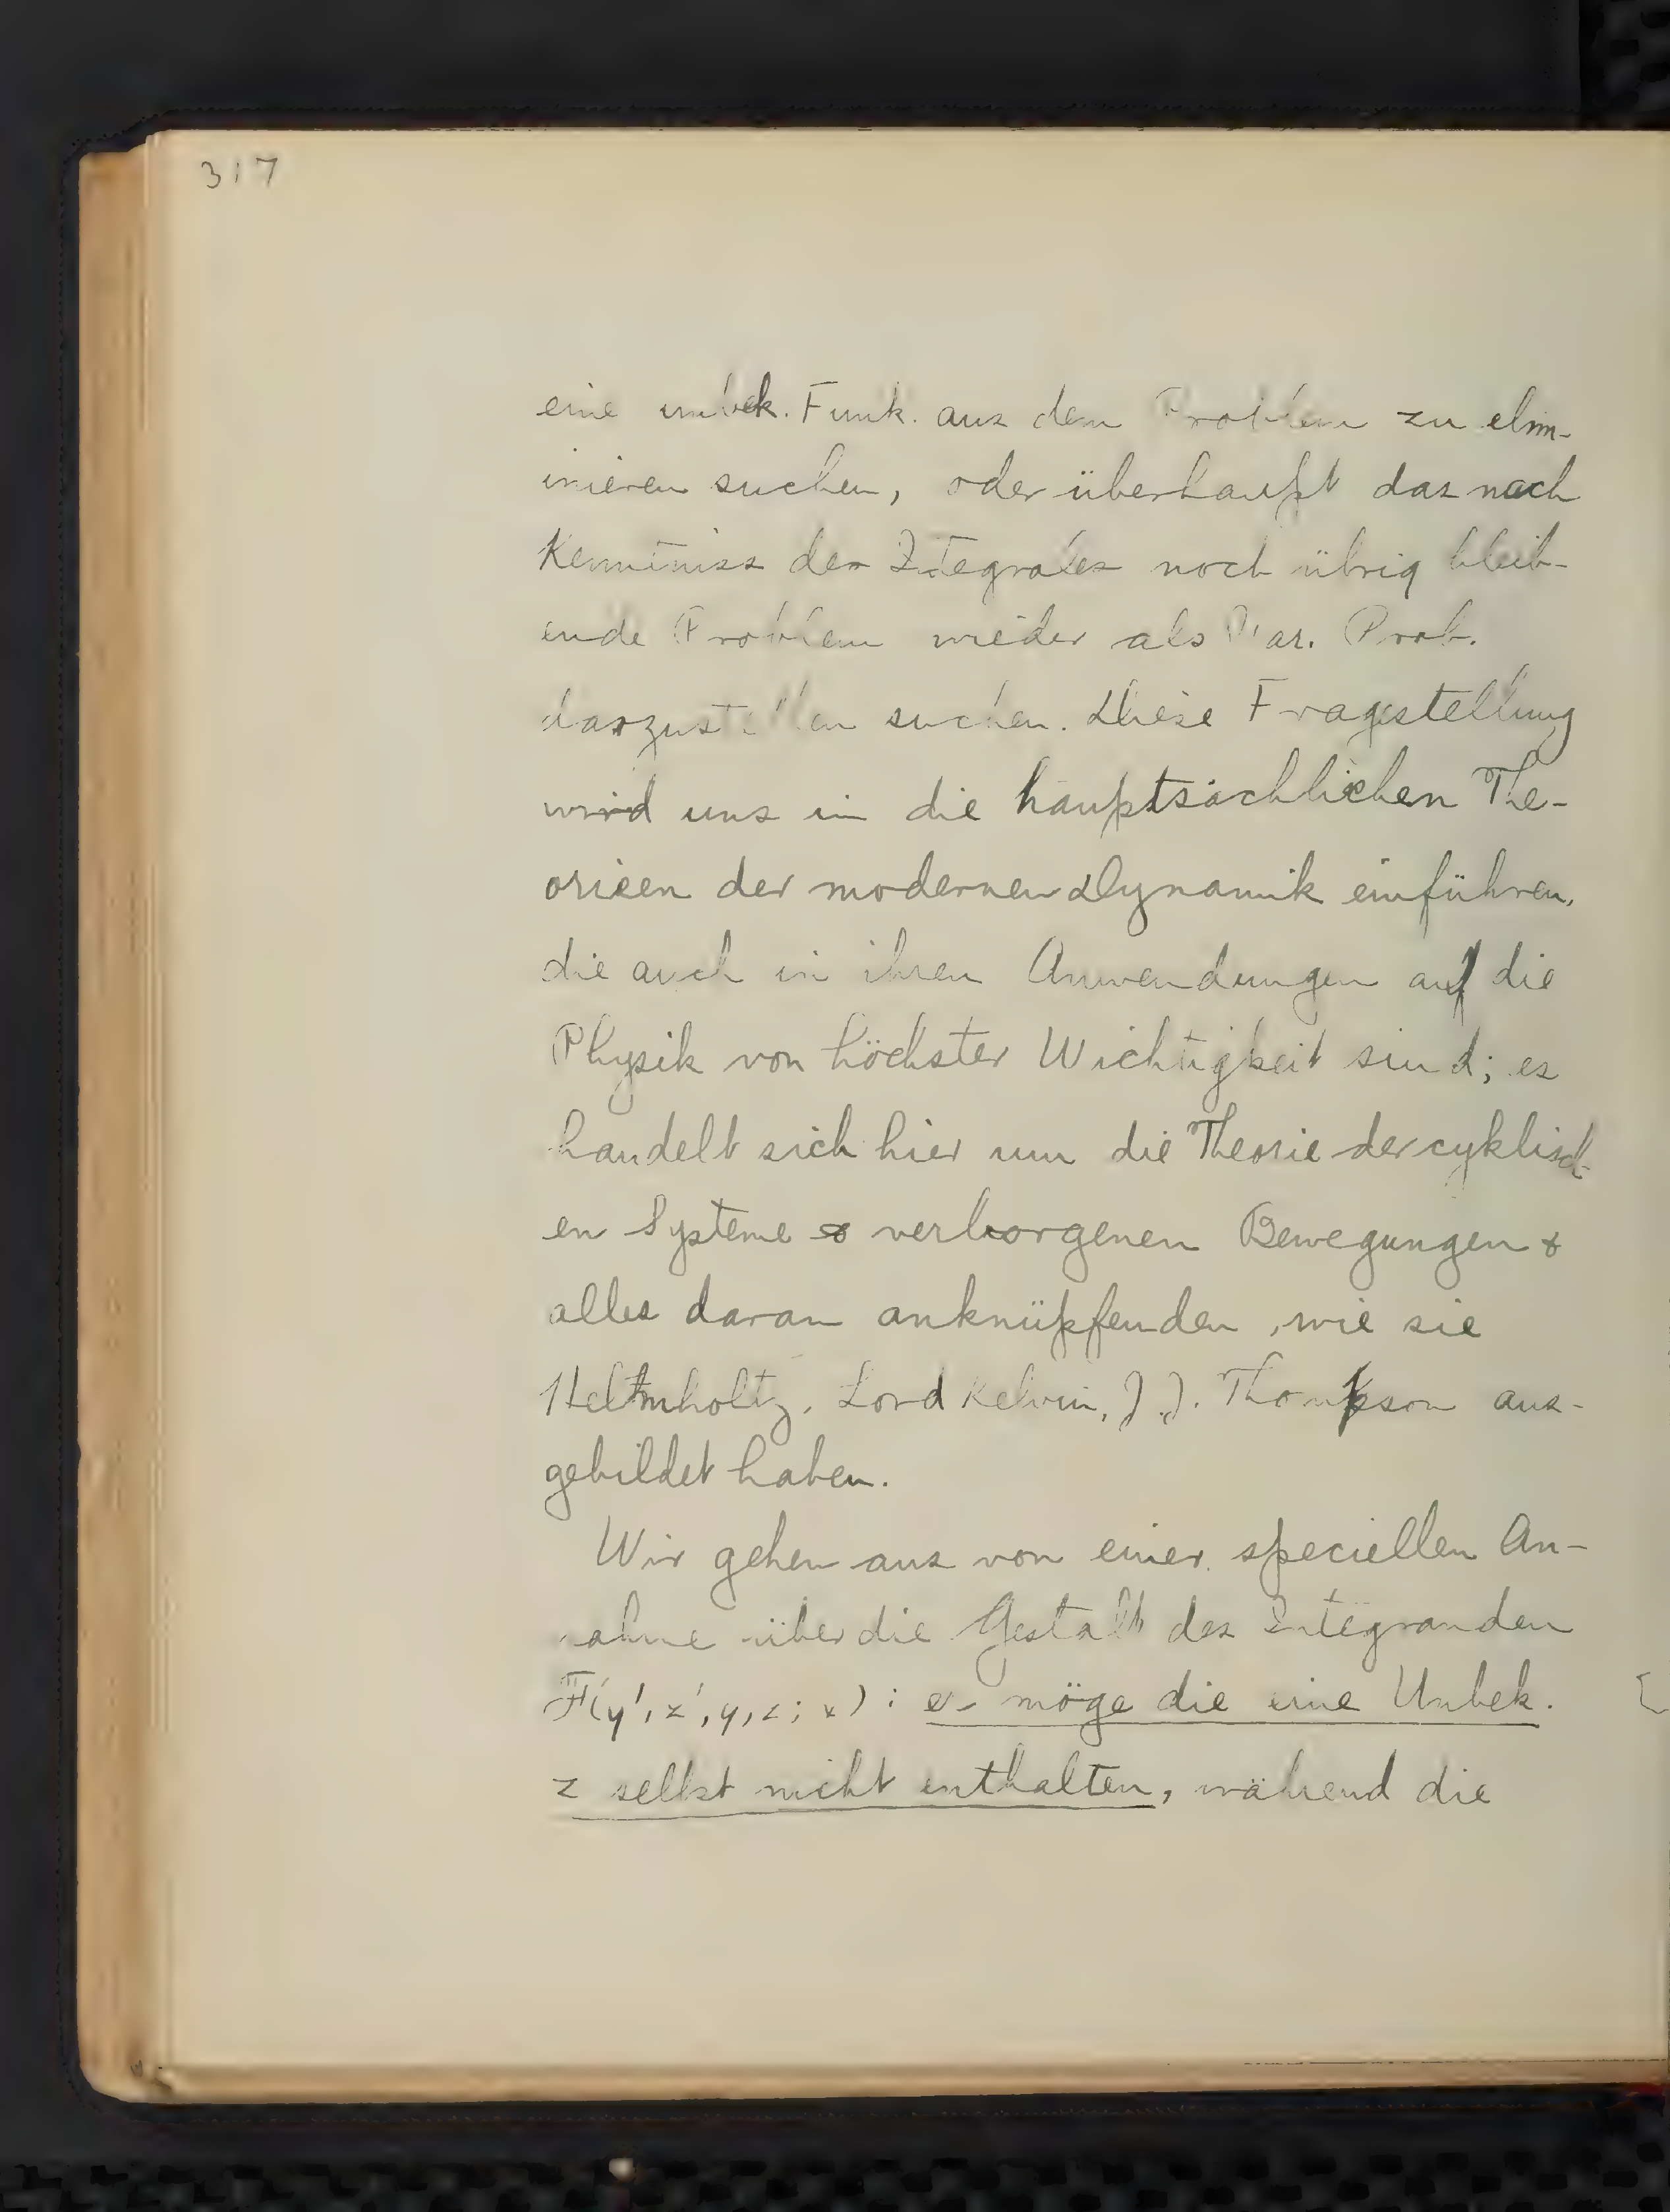 317
eine unbek. Funk. aus dem Problem zu elim-
inieren suchen, oder überhaupt das nach
Kenntniss des Integrales noch übrig bleib-
ende Problem wieder als Var. Prob.
darzustellen suchen. Diese Fragestellung
wird uns in die hauptsächlichen The-
orieen der modernen Dynamik einführen,
die auch in ihren Anwendungen auf die
Physik von höchster Wichtigkeit sind; es
handelt sich hier um die Theorie der cyklisch-
en Systeme & verborgenen Bewegungen &
alles daran anknüpfenden, wie sie
Helmholtz, Lord Kelvin, J. J. Thomson aus-
gebildet haben.
Wir gehen aus von einer speciellen An-
nahme über die Gestalt des Integranden
F(y', z', y, z; x): er möge die eine Unbek.
z selbst nicht enthalten, während die